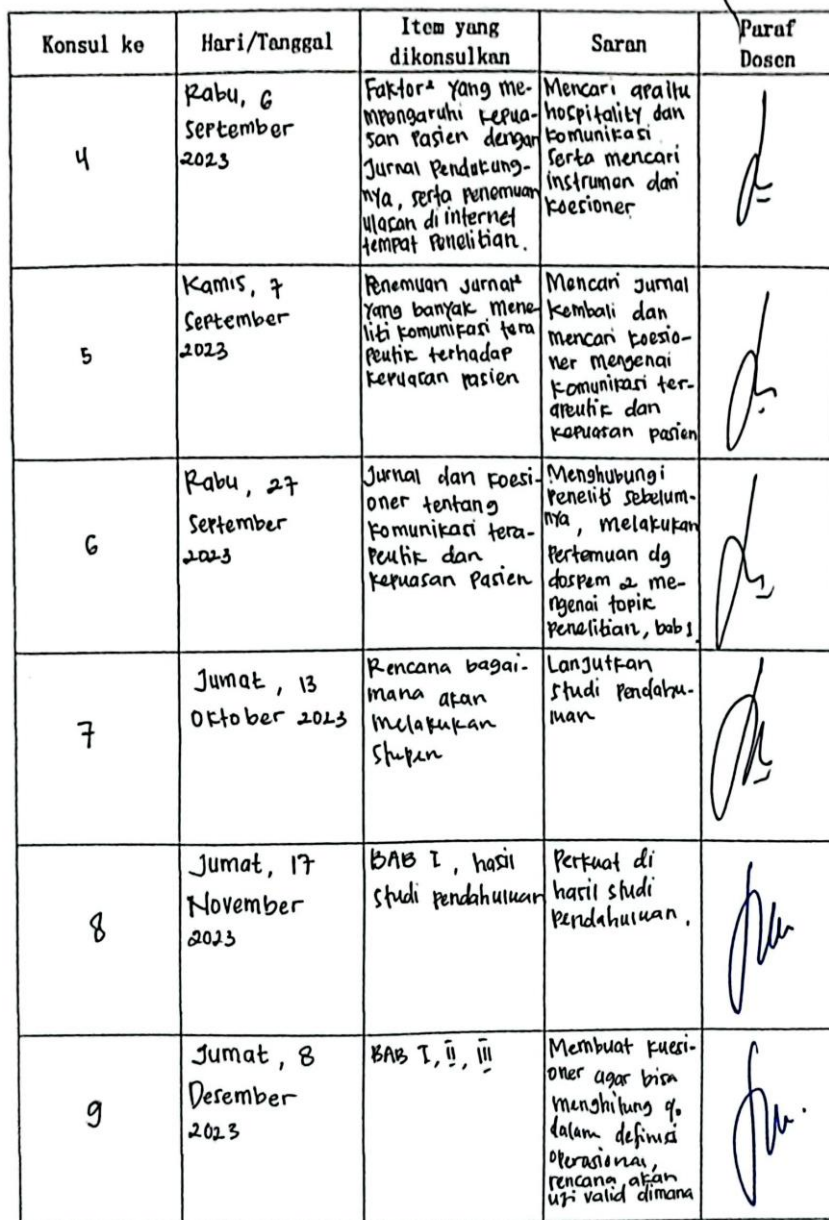 Konsul ke
Hari/Tanggal
Item yang
dikonsulkan
Saran
Paraf
Dosen
4
Rabu, 6
September
2023
Faktor² yang me-
mpengaruhi kepua-
san pasien dengan
Jurnal Pendukung-
nya, serta penemuan
ulasan di internet
tempat Penelitian.
Mencari apa itu
hospitality dan
komunikasi
serta mencari
instrumen dari
koesioner
5
Kamis, 7
September
2023
Penemuan Jurnal²
yang banyak mene-
liti komunikasi tera
peutik terhadap
kepuasan pasien
Mencari Jurnal
kembali dan
mencari koesio-
ner mengenai
komunikasi ter-
apeutik dan
kepuasan pasien
6
Rabu, 27
September
2023
Jurnal dan koesi-
oner tentang
komunikasi tera-
peutik dan
kepuasan Pasien
Menghubungi
peneliti sebelum-
nya, melakukan
Pertemuan dg
dospem 2 me-
ngenai topik
penelitian, bab 1
7
Jumat, 13
Oktober 2023
Rencana bagai-
mana akan
melakukan
Stupen
Lanjutkan
studi Pendahu-
luan
8
Jumat, 17
November
2023
BAB I, hasil
studi pendahuluan
Perkuat di
hasil studi
Pendahuluan.
9
Jumat, 8
Desember
2023
BAB I, II, III
Membuat kuesi-
oner agar bisa
menghitung %
dalam definisi
operasional,
rencana akan
uji valid dimana